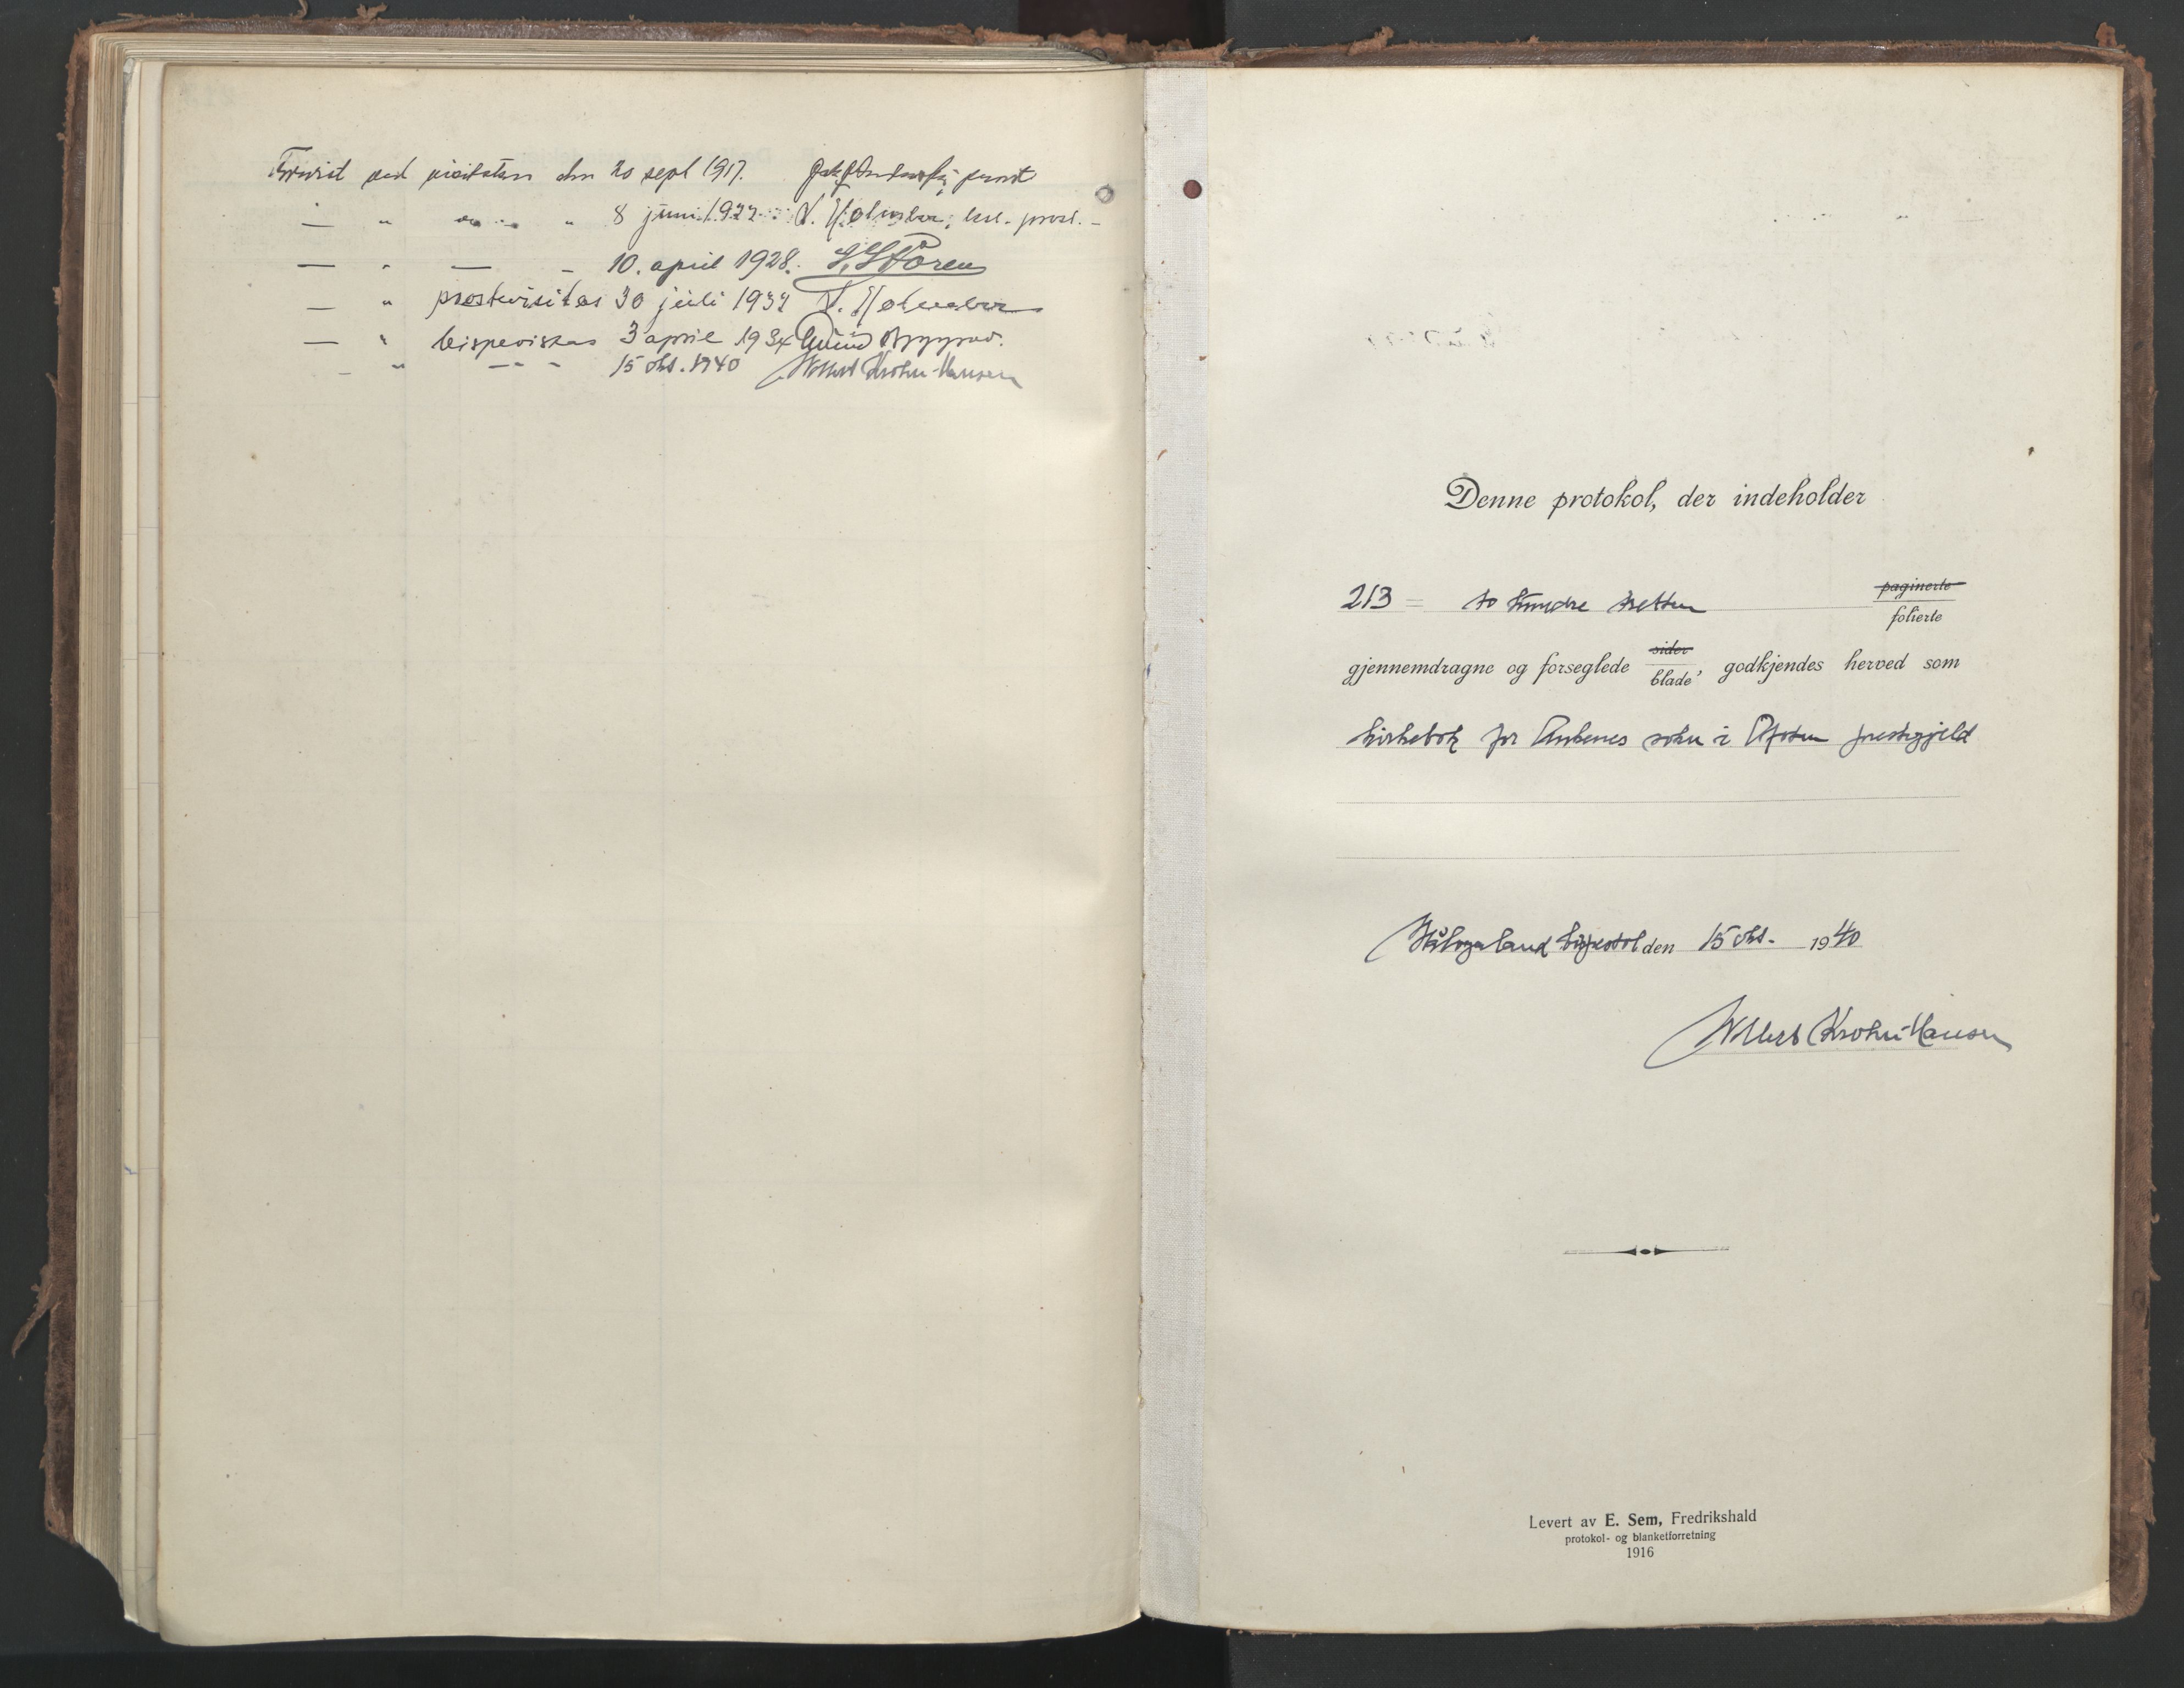 visitatsen den 20 sept 1917. prost
— " — " 8 juni 1922. Holmebor, kst. prost. —
— " — — 10. april 1928. S. Støren
— " prostevisitas 30 juli 1932 Holmebor
— " bispevisitas 3 april 1934 Eivind Berggrav.
— " — " — 15 okt. 1940 Wollert Krohn-Hansen
Denne protokol, der indeholder
213 = to hundre tretten paginerte
folierte
gjennemdragne og forseglede sider
blade, godkjendes herved som
kirkebok for Ankenes sokn i Ofoten prestegjeld
Hålogaland bispestol den 15 okt. 1940
Wollert Krohn-Hansen
Levert av E. Sem, Fredrikshald
protokol- og blanketforretning
1916